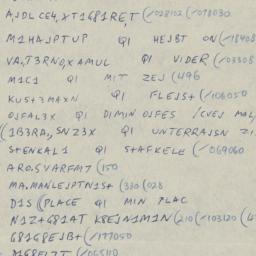 AJDLCE4,XT1G81RE,T (/028102 (/078030
M1HAJPTUP QI HEJBT ON (/18408
VA,T3RNO,XAMUL QI VIDER (/03308
M1C1 QI MIT ZEJ (496
KUSTZMAXN QI FLEJST (/106050
OSFAL3X QI DIMIN OSFES /CVES MAL,
(1B3RA,,SNZ3X QI UNTERRAJSN
STENKAL1 QI STAFKELE (/069060
ARO,SVARFMT (150
MA,MANLEJPTNIST (330 (028
D1S (PLACE QI MIN PLAC
N1Z+G81AT K8EJN1M1N (210 (/103120
G81G8EJB+ (/177050
(/065110